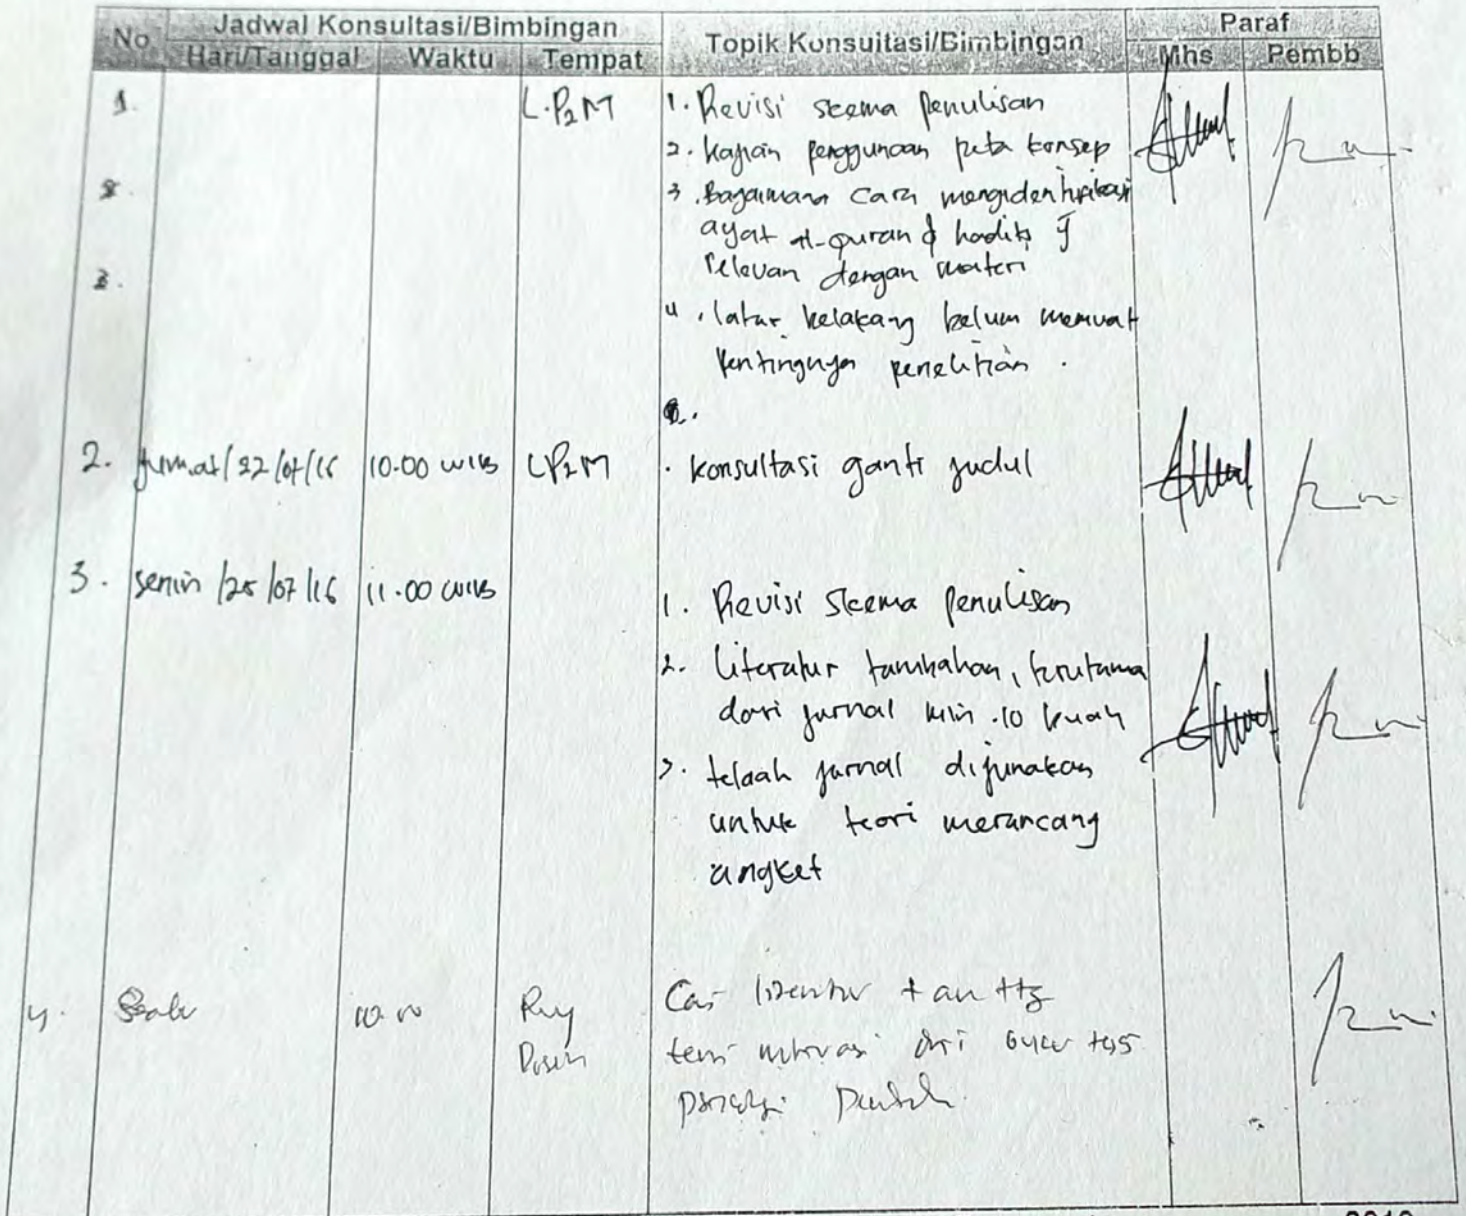 No Jadwal Konsultasi/Bimbingan Topik Konsultasi/Bimbingan Paraf
Hari/Tanggal Waktu Tempat Mhs Pembb
1. L.P2M 1. Revisi skema penulisan
2. kajian penggunaan peta konsep
3. Bagaimana cara mengidentifikasi
ayat al-quran & hadits yg
relevan dengan materi
3.
4. latar belakang belum memuat
pentingnya penelitian.
2. jum'at/22/07/16 10.00 WIB LP2M . konsultasi ganti judul
3. senin /25/07/16 11.00 WIB
1. Revisi skema penulisan
2. literatur tambahan, terutama
dari jurnal min.10 buah
3. telaah jurnal digunakan
untuk teori merancang
angket
4. 10.00 Dosen
teori motivasi dari